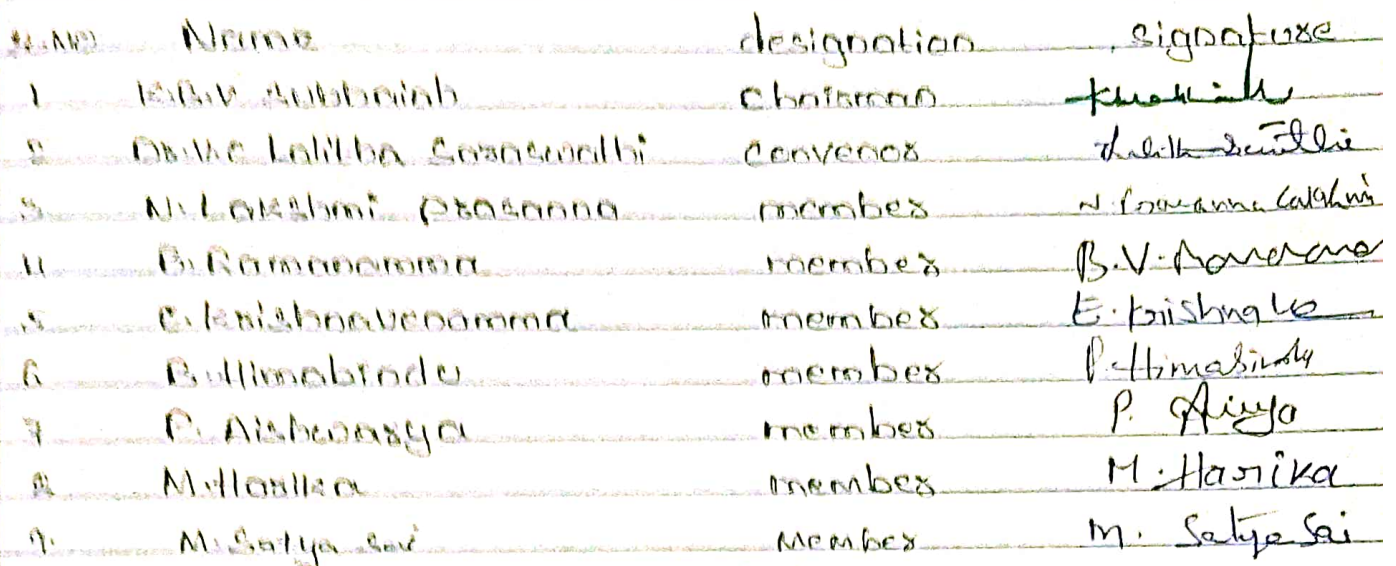 S.No Name designation signature
1 K.B.V Subbaiah Chairman
2 Lalitha Saraswathi convenor
3 N. Lakshmi Prasanna member N. Prasanna Lakshmi
4 B. Ramanamma member B.V. Ramana
5 E. Krishnavenamma member E. Krishnave
6 P. Himabindu member P. Himabindu
7 P. Aishwarya member P.
8 M. Harika member M. Harika
9. M. Satya Sai Member M. Satya Sai